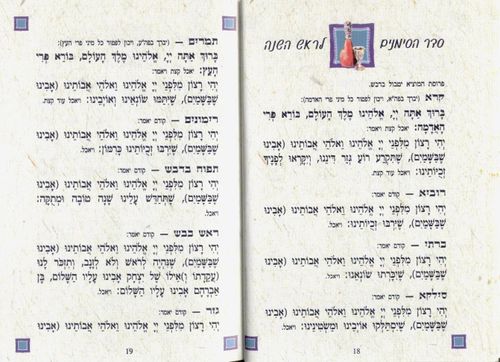 סדר הסימנים לראש השנה
פרוסת המוציא יטבול בדבש.
קרא — (יברך בפה"א, ויכון לפטור כל מיני פרי האדמה):
בָּרוּךְ אַתָּה יְיָ, אֱלֹהֵינוּ מֶלֶךְ הָעוֹלָם, בּוֹרֵא פְּרִי
הָאֲדָמָה: יאכל קצת ויאמר:
יְהִי רָצוֹן מִלְּפָנֶיךָ יְיָ אֱלֹהֵינוּ וֵאלֹהֵי אֲבוֹתֵינוּ (אָבִינוּ
שֶׁבַּשָּׁמַיִם), שֶׁתִּקְרַע רוֹעַ גְּזַר דִּינֵנוּ, וְיִקָּרְאוּ לְפָנֶיךָ
זְכוּיוֹתֵינוּ: ויאכל עוד קצת.
רוביא — קודם יאמר:
יְהִי רָצוֹן מִלְּפָנֶיךָ יְיָ אֱלֹהֵינוּ וֵאלֹהֵי אֲבוֹתֵינוּ (אָבִינוּ
שֶׁבַּשָּׁמַיִם), שֶׁיִּרְבּוּ זְכֻיּוֹתֵינוּ: ויאכל.
כרתי — קודם יאמר:
יְהִי רָצוֹן מִלְּפָנֶיךָ יְיָ אֱלֹהֵינוּ וֵאלֹהֵי אֲבוֹתֵינוּ (אָבִינוּ
שֶׁבַּשָּׁמַיִם), שֶׁיִּכָּרְתוּ שׂוֹנְאֵינוּ: ויאכל.
סלקא — קודם יאמר:
יְהִי רָצוֹן מִלְּפָנֶיךָ יְיָ אֱלֹהֵינוּ וֵאלֹהֵי אֲבוֹתֵינוּ (אָבִינוּ
שֶׁבַּשָּׁמַיִם), שֶׁיִּסְתַּלְּקוּ אוֹיְבֵינוּ וּמַשְׂטִינֵינוּ: ויאכל.
18
תמרים — (יברך בפה"ע, ויכון לפטור כל מיני פרי העץ):
בָּרוּךְ אַתָּה יְיָ, אֱלֹהֵינוּ מֶלֶךְ הָעוֹלָם, בּוֹרֵא פְּרִי
הָעֵץ: יאכל קצת ויאמר:
יְהִי רָצוֹן מִלְּפָנֶיךָ יְיָ אֱלֹהֵינוּ וֵאלֹהֵי אֲבוֹתֵינוּ (אָבִינוּ
שֶׁבַּשָּׁמַיִם), שֶׁיִּתַּמּוּ שׂוֹנְאֵינוּ וְאוֹיְבֵינוּ: ויאכל עוד קצת.
רימונים — קודם יאמר:
יְהִי רָצוֹן מִלְּפָנֶיךָ יְיָ אֱלֹהֵינוּ וֵאלֹהֵי אֲבוֹתֵינוּ (אָבִינוּ
שֶׁבַּשָּׁמַיִם), שֶׁיִּרְבּוּ זְכֻיּוֹתֵינוּ כְּרִמּוֹן: ויאכל.
תפוח בדבש — קודם יאמר:
יְהִי רָצוֹן מִלְּפָנֶיךָ יְיָ אֱלֹהֵינוּ וֵאלֹהֵי אֲבוֹתֵינוּ (אָבִינוּ
שֶׁבַּשָּׁמַיִם), שֶׁתְּחַדֵּשׁ עָלֵינוּ שָׁנָה טוֹבָה וּמְתוּקָה:
ויאכל.
ראש כבש — קודם יאמר:
יְהִי רָצוֹן מִלְּפָנֶיךָ יְיָ אֱלֹהֵינוּ וֵאלֹהֵי אֲבוֹתֵינוּ (אָבִינוּ
שֶׁבַּשָּׁמַיִם), שֶׁנִּהְיֶה לְרֹאשׁ וְלֹא לְזָנָב, וְתִזְכֹּר לָנוּ
(עֲקֵדָתוֹ ו)אֵילוֹ שֶׁל יִצְחָק אָבִינוּ עָלָיו הַשָּׁלוֹם, בֶּן
אַבְרָהָם אָבִינוּ עָלָיו הַשָּׁלוֹם: ויאכל.
גזר — קודם יאמר:
יְהִי רָצוֹן מִלְּפָנֶיךָ יְיָ אֱלֹהֵינוּ וֵאלֹהֵי אֲבוֹתֵינוּ (אָבִינוּ
19